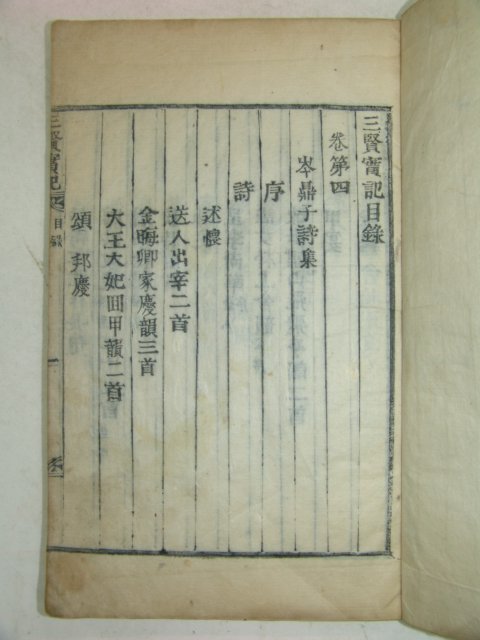 三賢實記目錄
卷第四
岑鼎子詩集
序
詩
述懷
送人出宰二首
金晦卿家慶韻三首
大王大妃回甲韻二首
頌邦慶
三賢實記
目錄
一